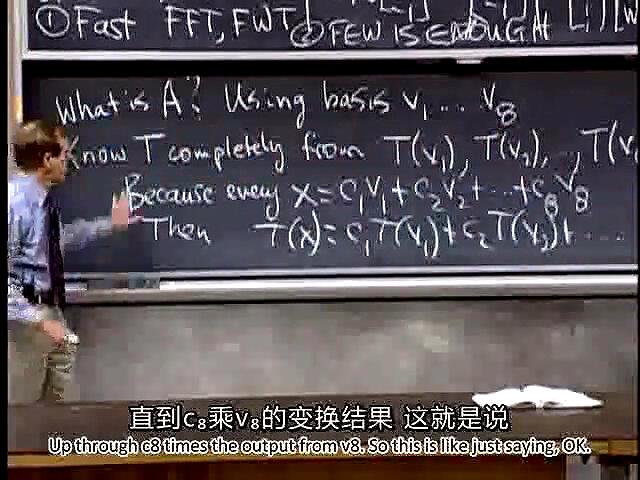 ① Fast FFT, FWT ② FEW IS ENOUGH
What is A? Using basis v₁ ... v₈
Know T completely from T(v₁), T(v₂), ..., T(v
Because every x = c₁v₁ + c₂v₂ + ... + c₈v₈
Then T(x) = c₁T(v₁) + c₂T(v₂) + ....
直到c₈乘v₈的变换结果 这就是说
Up through c8 times the output from v8. So this is like just saying, OK.